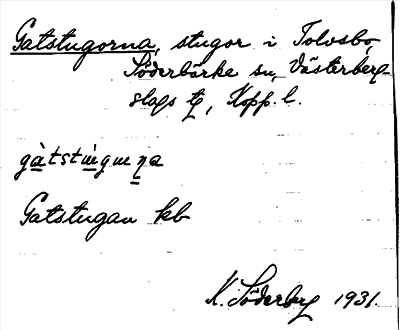 Gatstugorna, stugor i Tolvsbo,
Söderbärke sn, Västerberg-
slags tg, Kopp. l.
gàtstɯ̀gɯṇa
Gatstugan kb
K. Söderberg 1931.